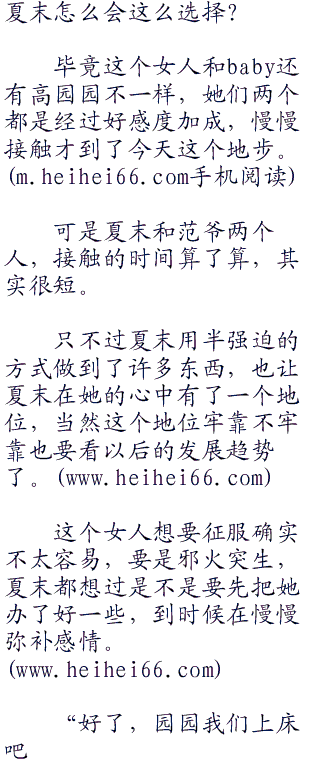 夏末怎么会这么选择？
毕竟这个女人和baby还
有高园园不一样，她们两个
都是经过好感度加成，慢慢
接触才到了今天这个地步。
(m.heihei66.com手机阅读)
可是夏末和范爷两个
人，接触的时间算了算，其
实很短。
只不过夏末用半强迫的
方式做到了许多东西，也让
夏末在她的心中有了一个地
位，当然这个地位牢靠不牢
靠也要看以后的发展趋势
了。(www.heihei66.com)
这个女人想要征服确实
不太容易，要是邪火突生，
夏末都想过是不是要先把她
办了好一些，到时候在慢慢
弥补感情。
(www.heihei66.com)
“好了，园园我们上床
吧